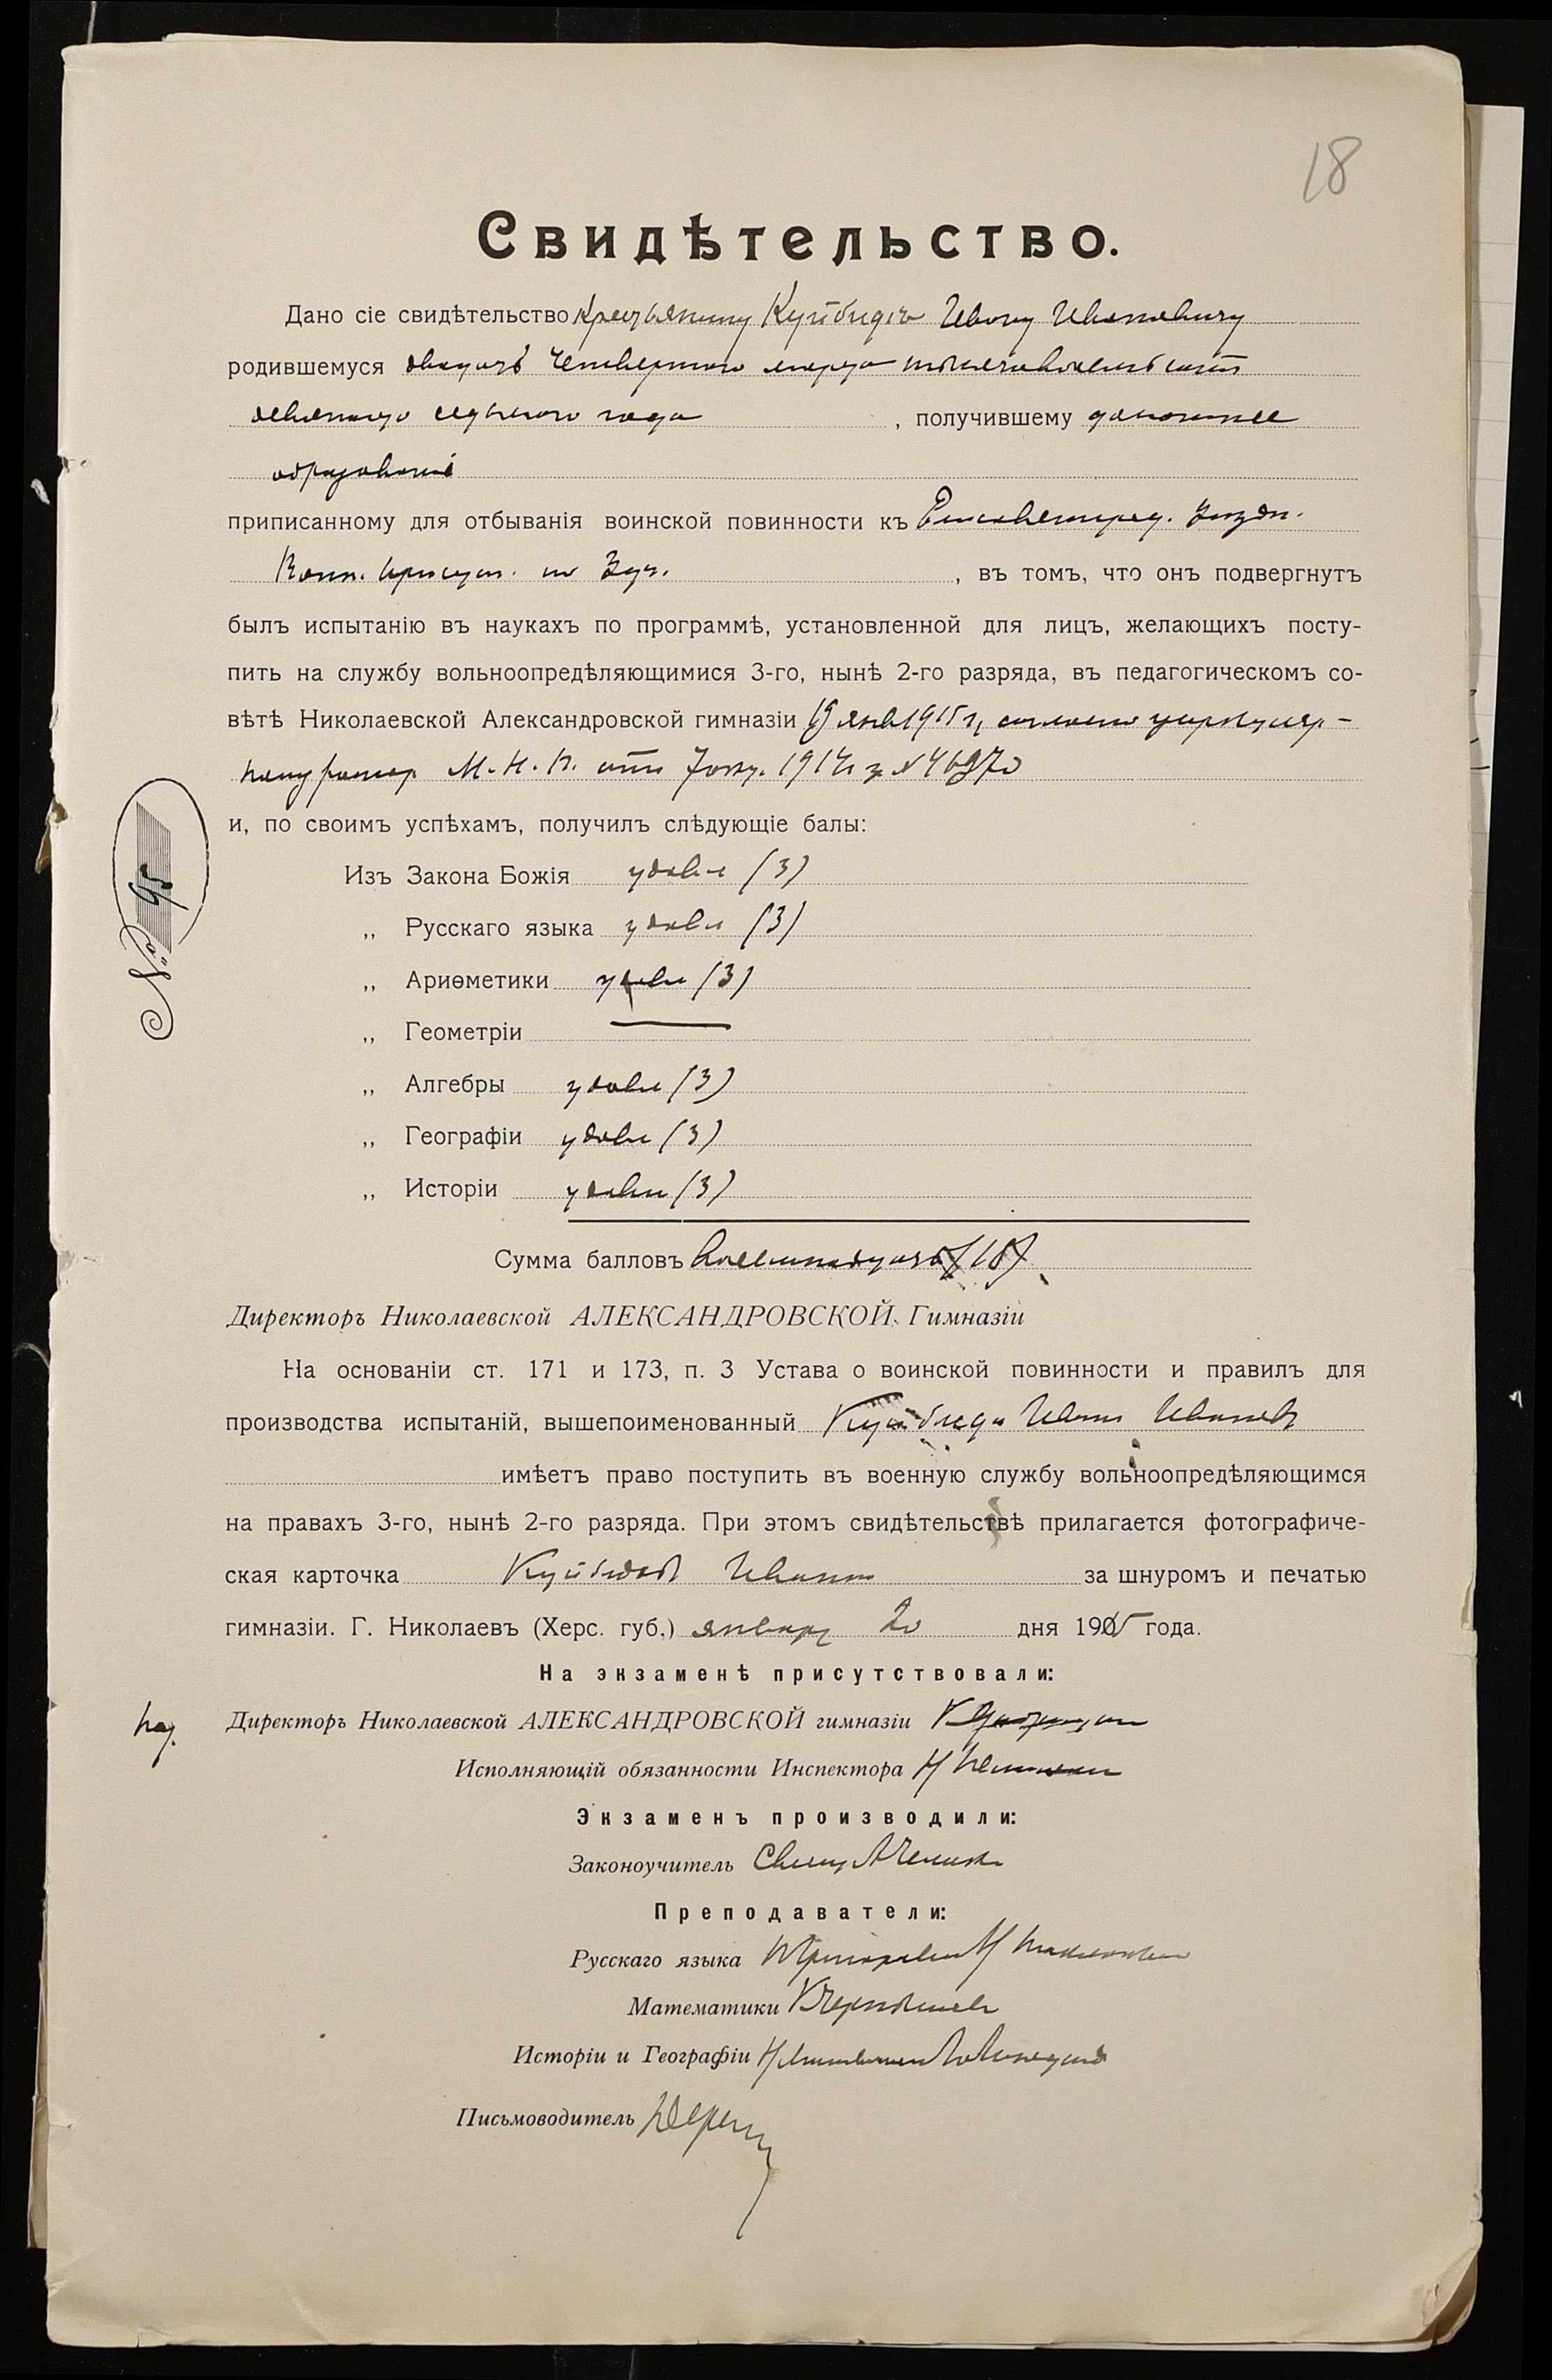 18
Свидѣтельство.
Дано сіе свидѣтельство Крестьянину Куйбида Ивану Ивановичу
родившемуся двадцать четвертаго марта тысяча восемьсотъ
девяносто седьмого года , получившему домашнее
образованіе
приписанному для отбыванія воинской повинности къ Елисаветград. Уѣздн.
Воин. Присут. по , въ томъ, что онъ подвергнутъ
былъ испытанію въ наукахъ по программѣ, установленной для лицъ, желающихъ посту-
пить на службу вольноопредѣляющимися 3-го, нынѣ 2-го разряда, въ педагогическомъ со-
вѣтѣ Николаевской Александровской гимназіи 19 янв 1915 г, согласно циркуляр-
ному М. Н. П. отъ 1914 г за №
и, по своимъ успѣхамъ, получилъ слѣдующіе балы:
№ 95
Изъ Закона Божія удовл (3)
„ Русскаго языка удовл (3)
„ Ариѳметики удовл (3)
„ Геометріи —
„ Алгебры удовл (3)
„ Географіи удовл (3)
„ Исторіи удовл (3)
Сумма балловъ Восемнадцать (18)
Директоръ Николаевской АЛЕКСАНДРОВСКОЙ Гимназіи
На основаніи ст. 171 и 173, п. 3 Устава о воинской повинности и правилъ для
производства испытаній, вышепоименованный Куйбида Иванъ Ивановъ
имѣетъ право поступить въ военную службу вольноопредѣляющимся
на правахъ 3-го, нынѣ 2-го разряда. При этомъ свидѣтельствѣ прилагается фотографиче-
ская карточка Куйбида Ивана за шнуромъ и печатью
гимназіи. Г. Николаевъ (Херс. губ.) января 20 дня 1915 года.
На экзаменѣ присутствовали:
Директоръ Николаевской АЛЕКСАНДРОВСКОЙ гимназіи
Исполняющій обязанности Инспектора
Экзаменъ производили:
Законоучитель Свящ.
Преподаватели:
Русскаго языка
Математики
Исторіи и Географіи
Письмоводитель